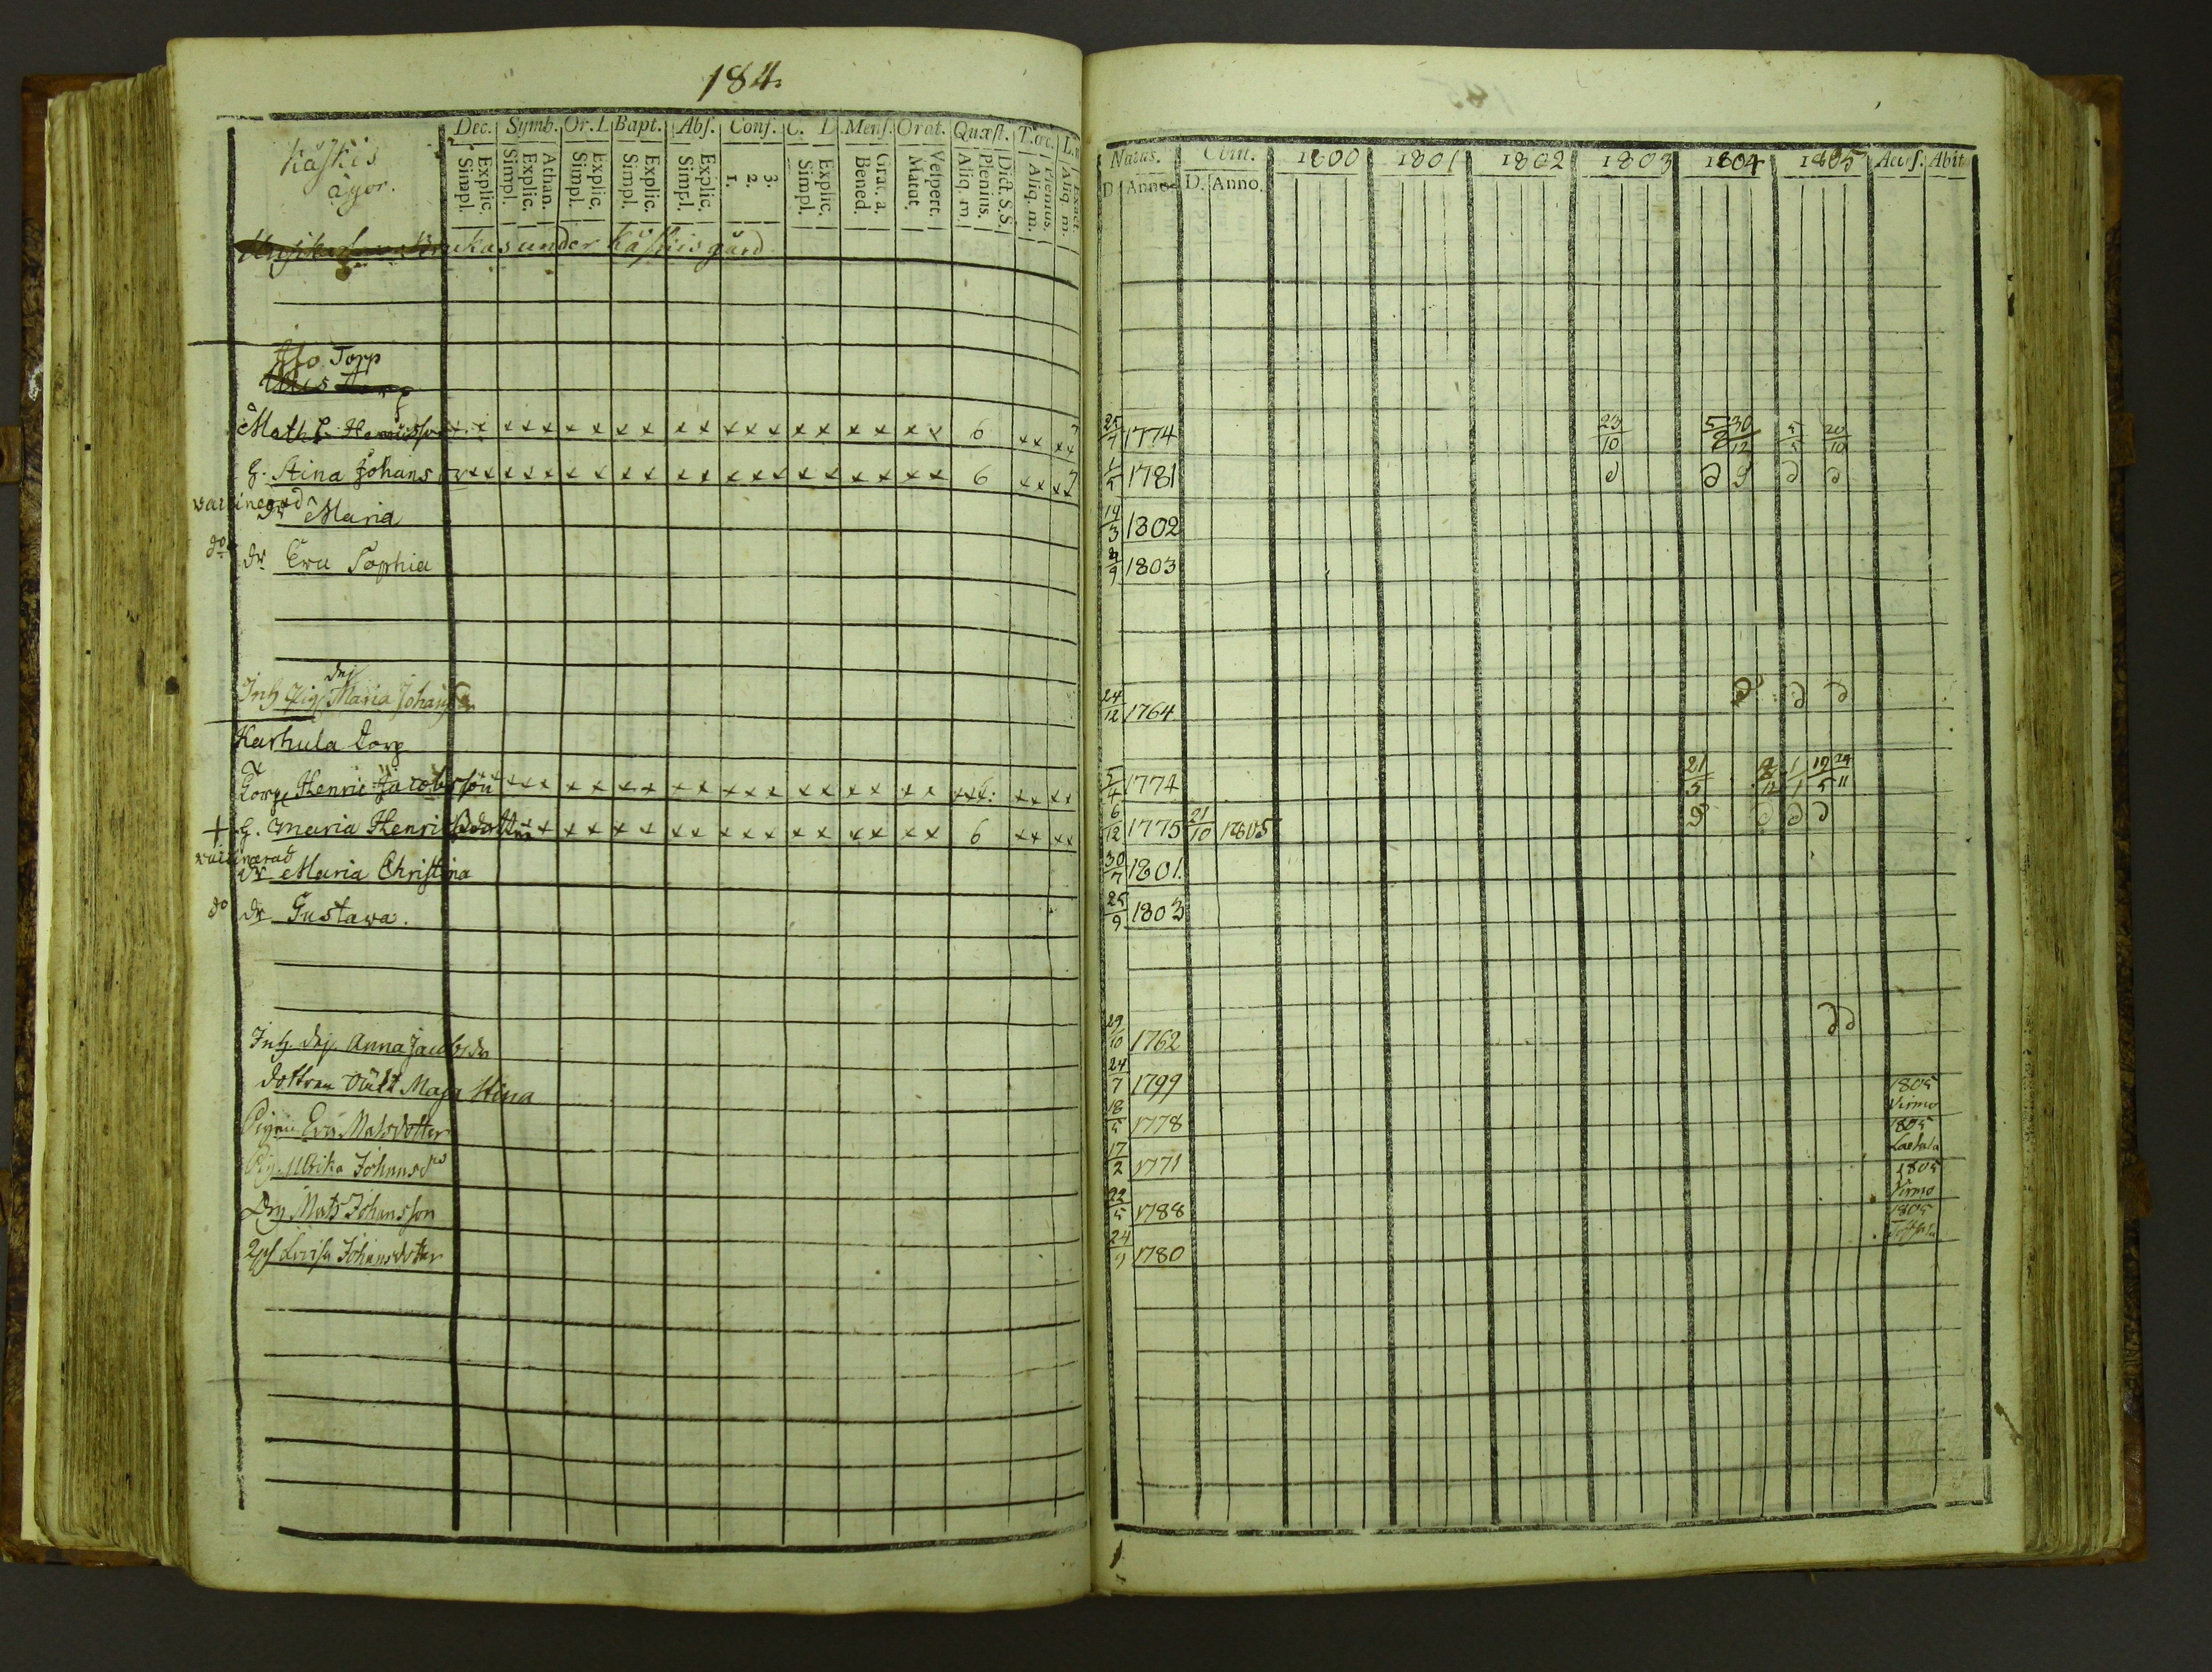 184.
Käskis ägor.
Dec. Symb. Or. L Bapt. Abs. Conf. C. L Mens. Orat. Quæst. T. œc. L.
Explic. Simpl. Athan. Explic. Simpl. Explic. Simpl. Explic. Simpl. Explic. Simpl. 3. 2. 1. Explic. Simpl. Grat. a. Bened. Vespert. Matut. Dict. S.S. Plenius. Aliq. m. Plenius. Aliq. m. Exact. Aliq. m.
Natus. Com. 1800 1801 1802 1803 1804 1805 Access. Abit
D. Anno D. Anno.
brukas under Käskis gård
Torp
Math 25/7 1774 23/10 5/8 30/12 5/5 20/10
h. Stina Johans 6 1/5 1781 d d d d d
vaccinerad
dr Maria 19/3 1802
do dr Eva Sophia 9 1803
Inh Pig Maria Johans 24/12 1764 d d d
Karhula torp
Torp Henric Jacobsson 1774 21/5 1/1 19/5 24/11
+ h. Maria Henricsdotter 6 6/12 1775 21/10 1805 d d d d
vaccinerad
dr Maria Christina 30/7 1801.
do dr Gustava. 25/9 1803
Inh. Anna Jacobsdr 29/10 1762 dd
dottren Maja Stina 24/7 1799
Pigan Eva Matsdotter 18/5 1778 1805 Virmo
Pig. Ulrika Johansdr 17/2 1771 1805
Drg Mats Johansson 22/5 1788 1805 Virmo
Lovisa Johansdotter 24/9 1780 1805